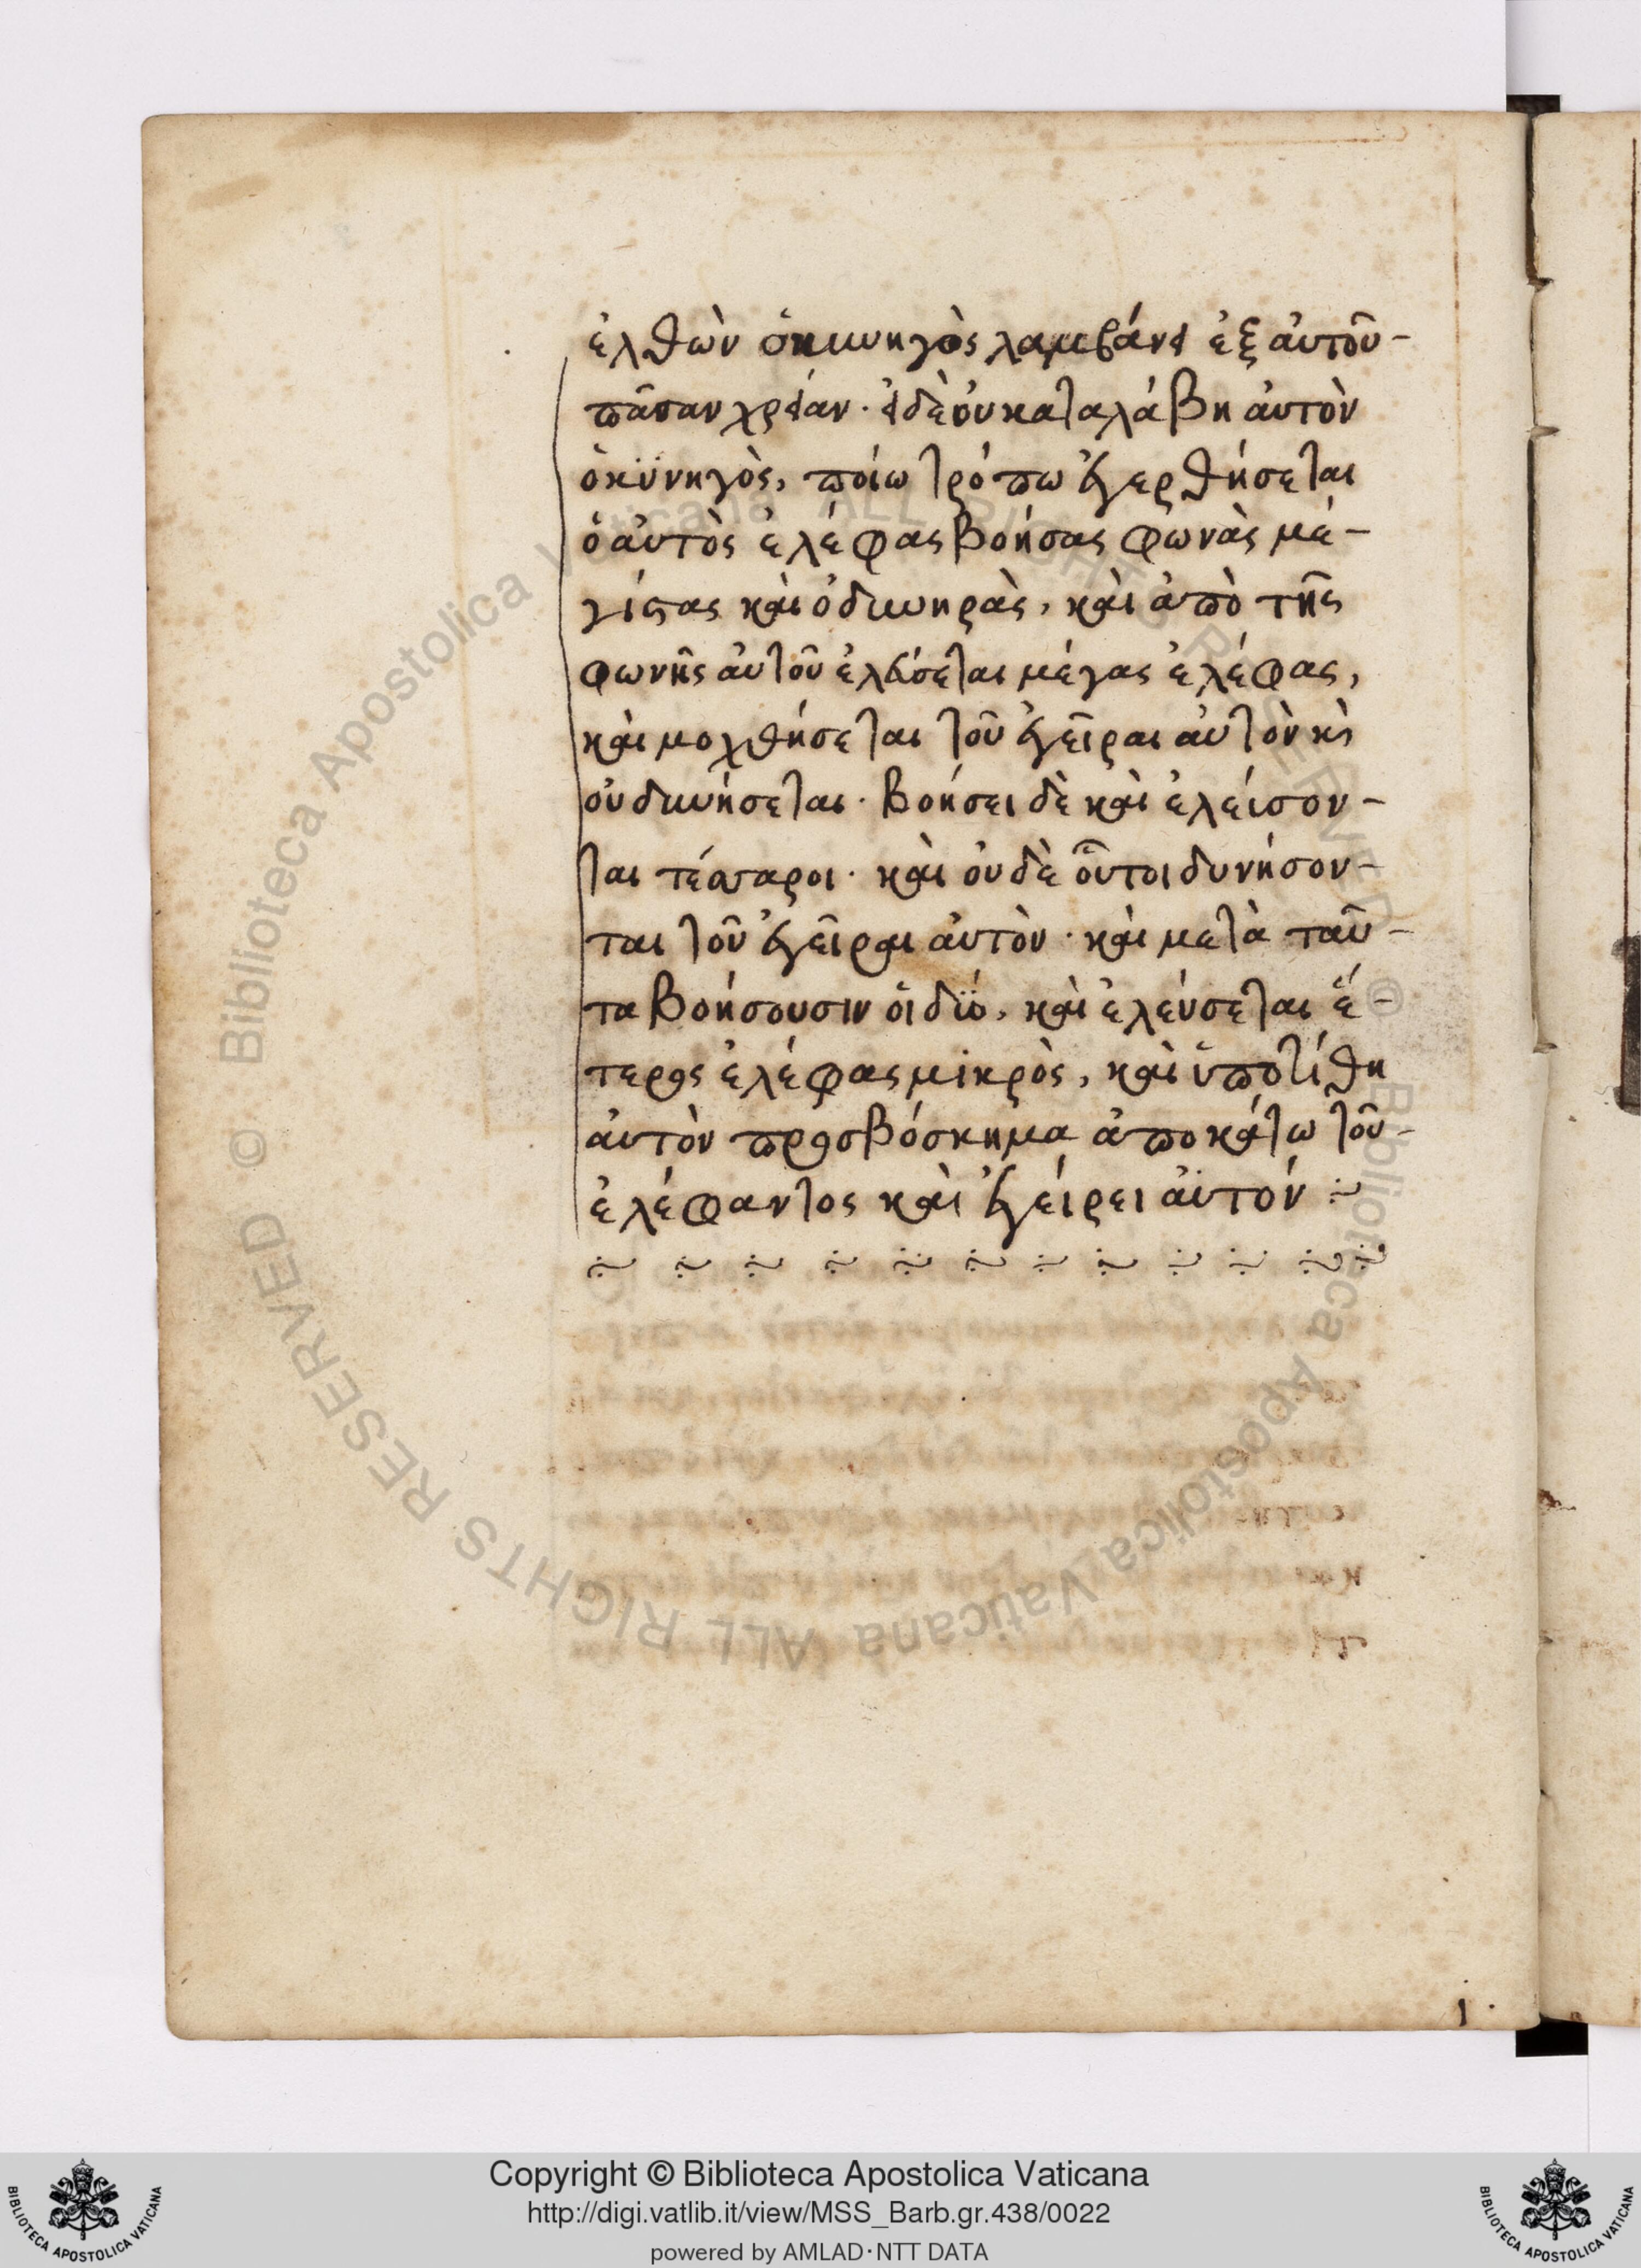 ἐλθὼν ὁ κυνηγὸς λαμβάνει ἐξ αὐτοῦ-
πᾶσαν χρείαν· εἰ δὲ οὐ καταλάβη αὐτὸν
ὁ κϋνηγὸς, ποίω τρόπω ἐγερθήσεται
ὁ αὐτὸς ἐλέφας βοήσας φωνὰς με-
γίστας καὶ ὀδυνηρὰς, καὶ ἀπὸ τῆς
φωνῆς αὐτοῦ ἐλεύσεται μέγας ἐλέφας,
καὶ μοχθήσεται τοῦ ἐγεῖραι αὐτὸν κὶ
οὐ δυνήσεται· βοήσει δὲ καὶ ἐλεύσον-
ται τέσσαροι· καὶ οὐδὲ οὗτοι δυνήσον-
ται τοῦ ἐγεῖραι αὐτὸν· καὶ μετὰ ταῦ-
τα βοήσουσιν οἱ δϋό, καὶ ἐλεύσεται ἕ-
τερος ἐλέφας μικρὸς, καὶ ὑποτίθη
αὐτὸν προσβόσκημα ἀποκάτω τοῦ-
ἐλέφαντος καὶ ἐγείρει αὐτόν
1.
Biblioteca Apostolica Vaticana ALL RIGHTS RESERVED © Biblioteca Apostolica Vaticana ALL RIGHTS RESERVED ©
Copyright © Biblioteca Apostolica Vaticana
http://digi.vatlib.it/view/MSS_Barb.gr.438/0022
powered by AMLAD·NTT DATA
BIBLIOTECA APOSTOLICA VATICANA
BIBLIOTECA APOSTOLICA VATICANA